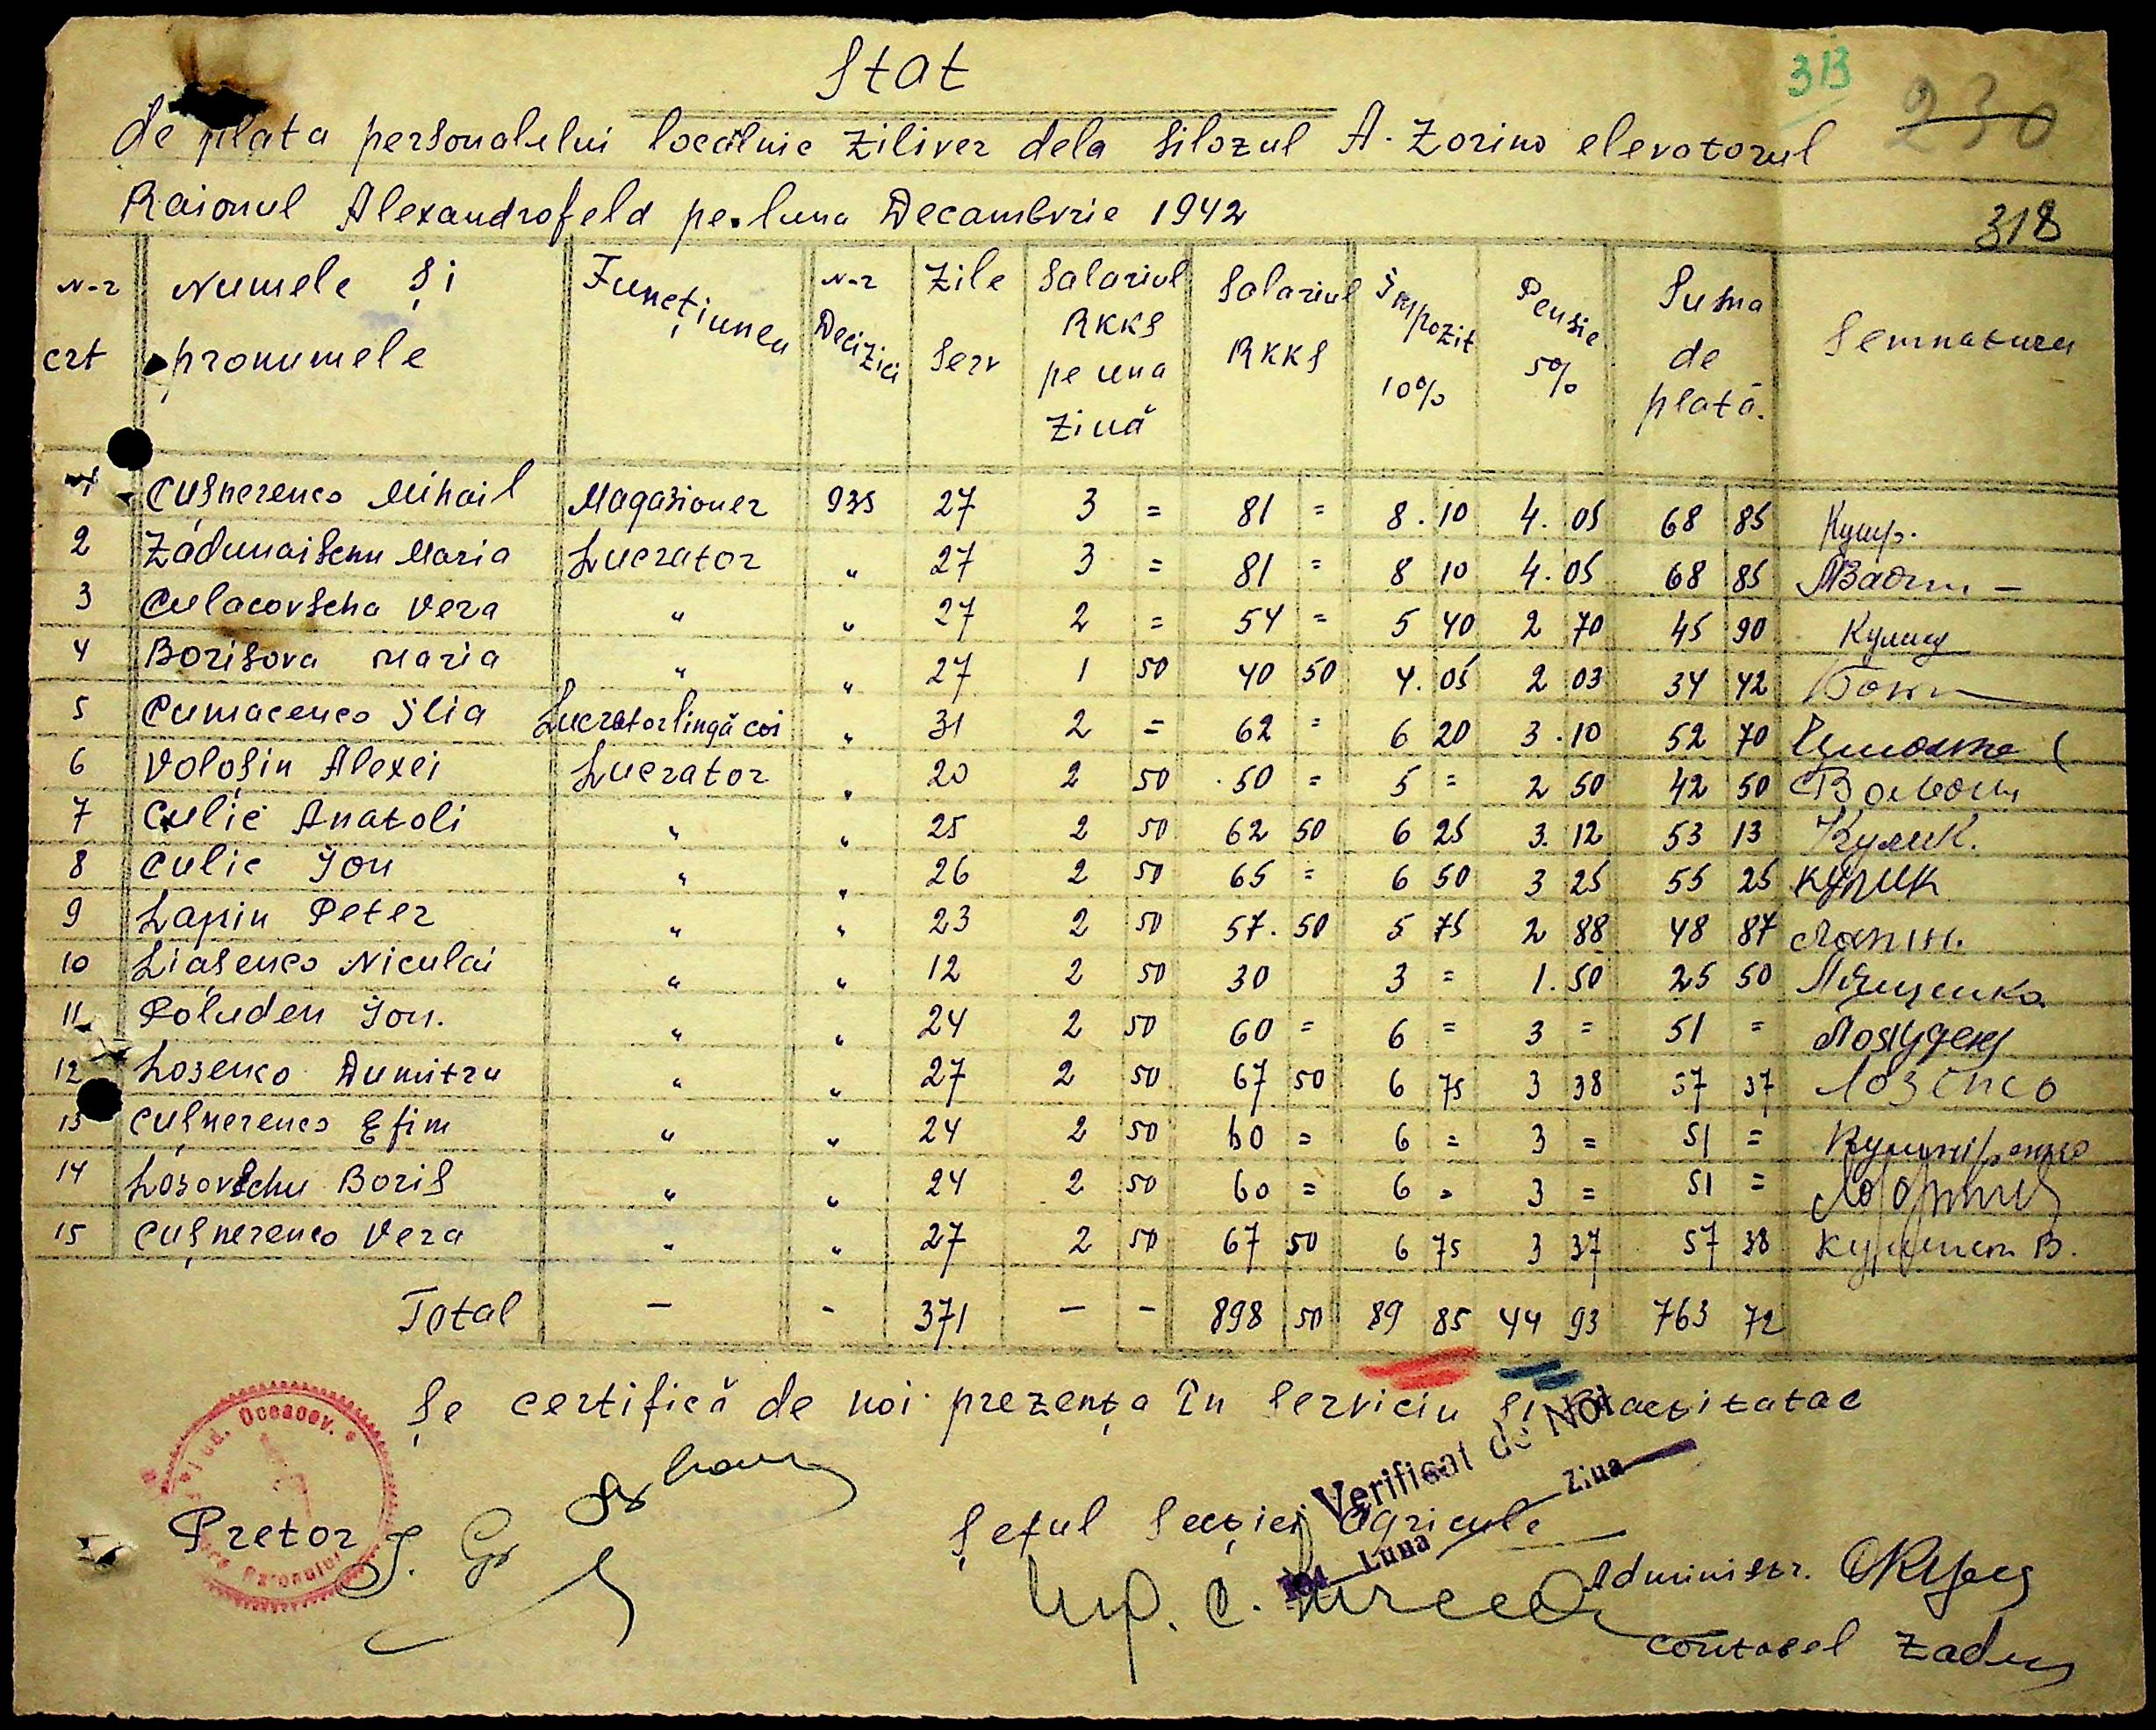 Stat
313
230
de plata personalului localnic ziliver dela silozul A. Zorino elevatorul
Raionul Alexandrofeld pe luna Decambrie 1942
318
N-r crt Numele și pronumele Funcțiunea N-r Decizici Zile Serv Salariul RKKS pe una ziuă Salariul RKKS Impozit 10% Pensie 5% Suma de plată. Semnatura
1 Cușnerenco Mihail Magazioner 935 27 3 = 81 = 8.10 4.05 68 85
2 Zadunaiscnu Maria Lucrator " 27 3 = 81 = 8 10 4.05 68 85
3 Culacovscha Vera " " 27 2 = 54 = 5 40 2 70 45 90
4 Borisova Maria " " 27 1 50 40 50 4.05 2 03 34 42
5 Cumacenco Ilia Lucratorlingă coi " 31 2 = 62 = 6 20 3.10 52 70
6 Voloșin Alexei Lucrator " 20 2 50 50 = 5 = 2 50 42 50
7 Culic Anatoli " " 25 2 50 62 50 6 25 3.12 53 13 Кулик.
8 Culic Ion " " 26 2 50 65 = 6 50 3 25 55 25 Кулик
9 Lapin Peter " " 23 2 50 57.50 5 75 2 88 48 87 Лапин.
10 Liașenco Niculai " " 12 2 50 30 3 = 1.50 25 50
11 Poluden Ion. " " 24 2 50 60 = 6 = 3 = 51 =
12 Lozenco Dumitru " " 27 2 50 67 50 6 75 3 38 57 37
13 Cușnerenco Efim " " 24 2 50 60 = 6 = 3 = 51 =
14 Lozovschu Boris " " 24 2 50 60 = 6 = 3 = 51 =
15 Cușnerenco Vera " " 27 2 50 67 50 6 75 3 37 57 38
Total — - 371 — - 898 50 89 85 44 93 763 72
Se certifică de noi prezența în serviciu și
Verificat de Noi
Jud. Oceacov.
Pretor
Șeful Secției Agricole
Luna Ziua
Administr.
contabel Zadun